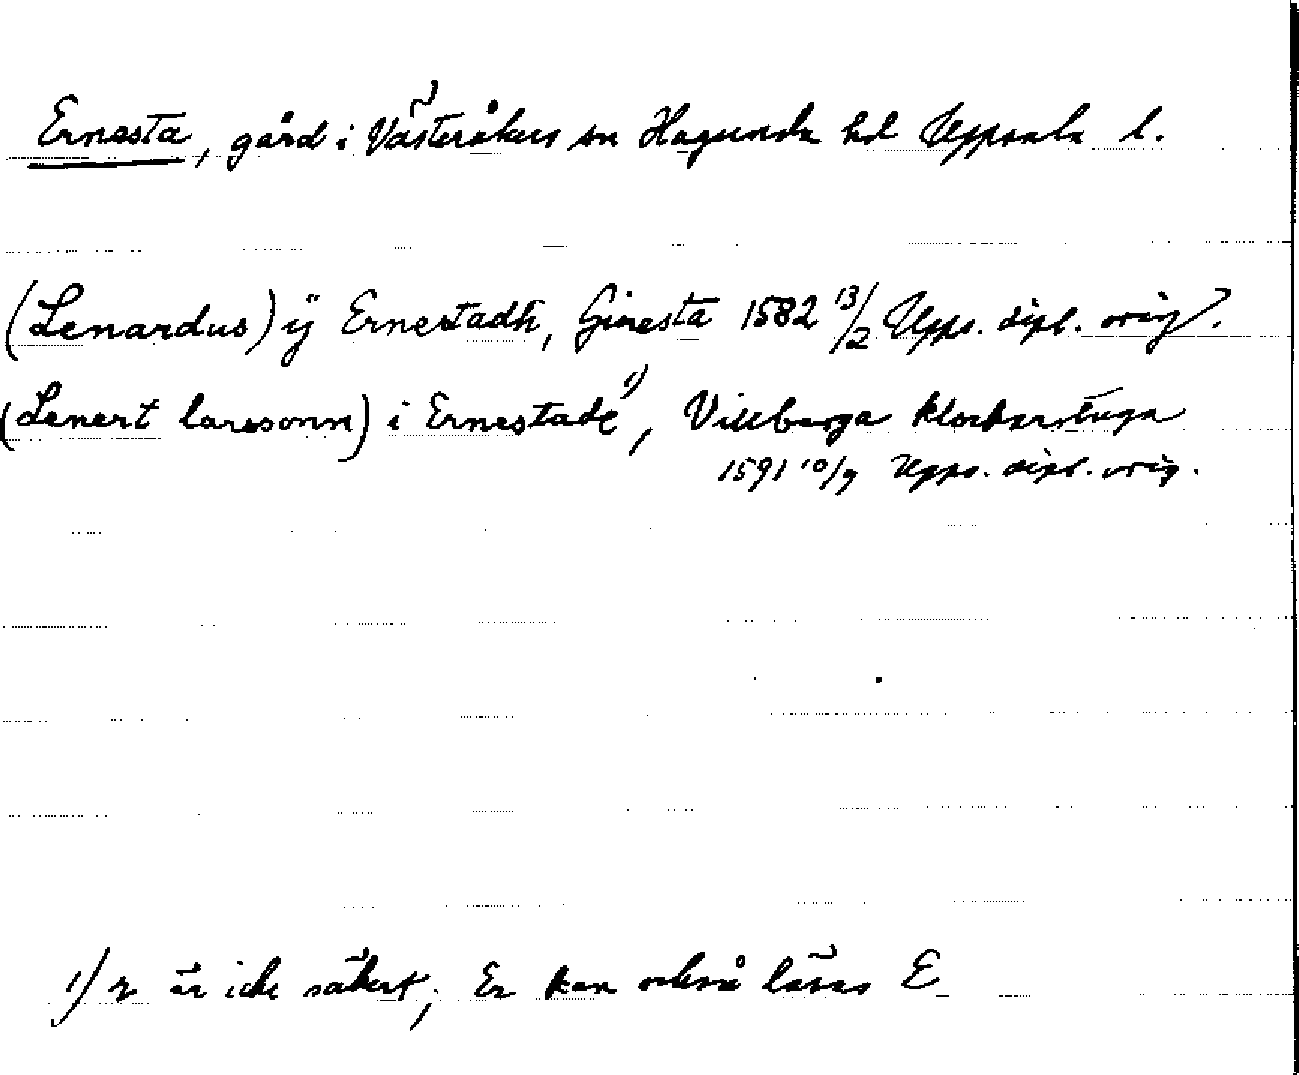 Ernesta, gård i Västeråkers sn Hagunda hd Uppsala l.
(Lenardus) ij Ernestadh, Giresta 1582 13/2 Upps. dipl. orig.
(Lenert larssonn) i Ernestade 1), Villberga klockarstuga
1591 10/9 Upps. dipl. orig.
1) r är icke säkert; Er kan också läsas E